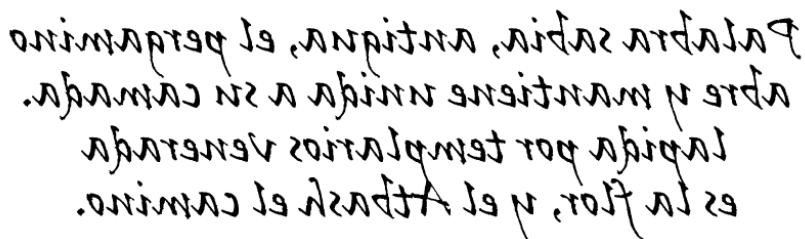 Palabra sabia, antigua, el pergamino
abre y mantiene unida a su camada.
lapida por templarios venerada
es la flor, y el Atbash el camino.